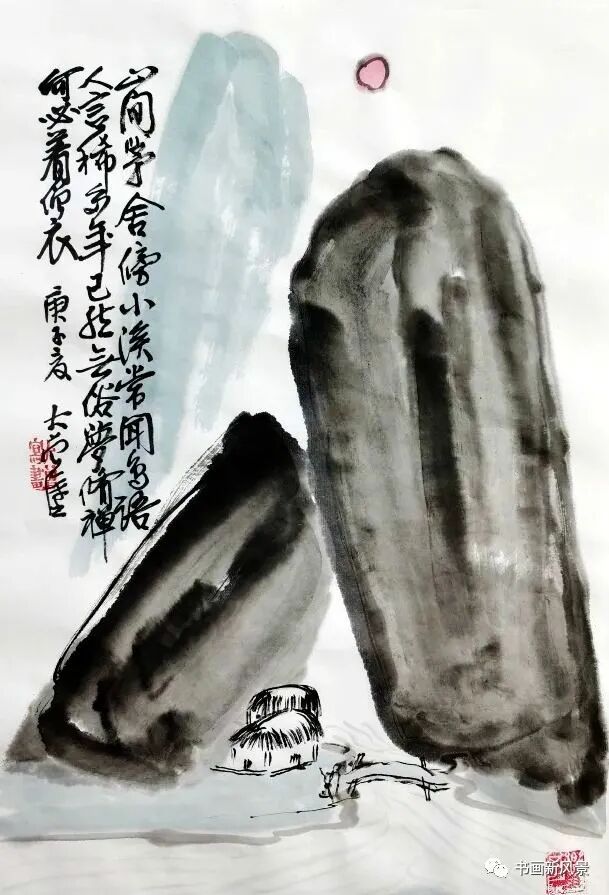 山间茅舍傍小溪常闻鸟语
人言稀多年已无俗夢修禅
何必着僧衣 庚子夏 大
书画新风景